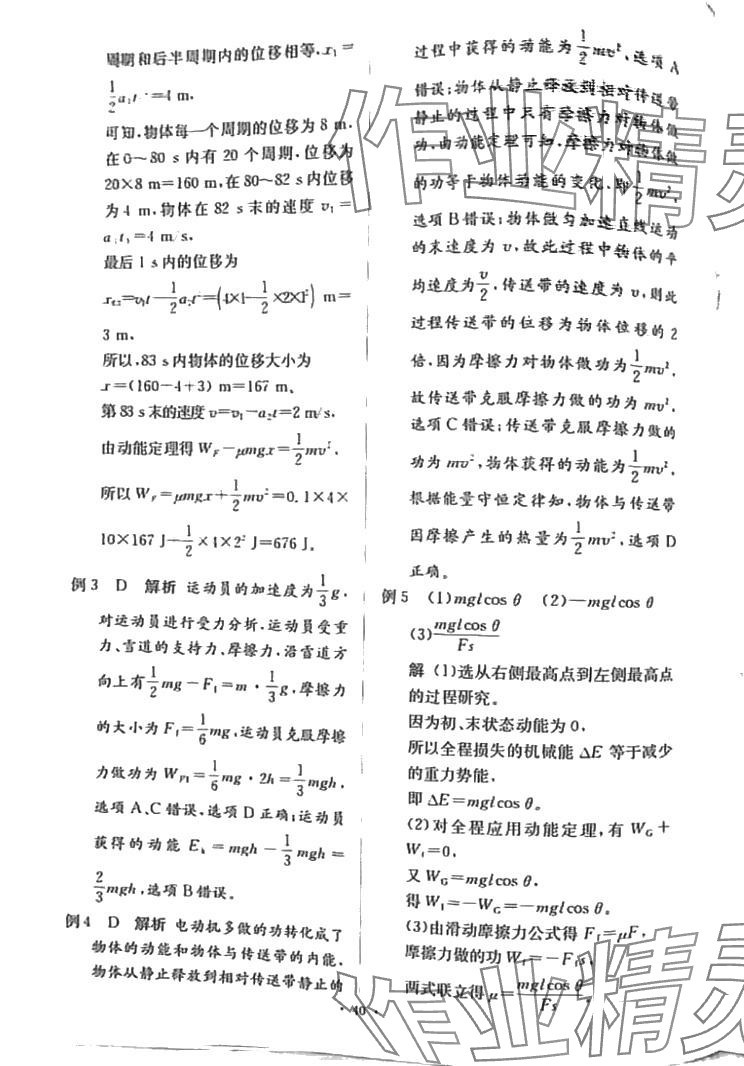 周期和后半周期内的位移相等,x₁=
½a₁t²=4 m.
可知,物体每一个周期的位移为 8 m,
在 0~80 s 内有 20 个周期,位移为
20×8 m=160 m,在 80~82 s 内位移
为 4 m,物体在 82 s 末的速度 v₁=
a₁t₁=4 m/s.
最后 1 s 内的位移为
=v₁t-½a₂t²=(4×1-½×2×1²) m=
3 m.
所以,83 s 内物体的位移大小为
x=(160+4+3) m=167 m.
第 83 s 末的速度 v=v₁-a₂t=2 m/s.
由动能定理得 W_F-μmgx=½mv²,
所以 W_F=μmgx+½mv²=0.1×4×
10×167 J+½×4×2² J=676 J.
例3 D 解析 运动员的加速度为⅓g,
对运动员进行受力分析,运动员受重
力、雪道的支持力、摩擦力,沿雪道方
向上有½mg-F_f=m·⅓g,摩擦力
的大小为 F_f=⅙mg,运动员克服摩擦
力做功为 W_Ff=⅙mg·2h=⅓mgh,
选项 A、C 错误,选项 D 正确;运动员
获得的动能 E_k=mgh-⅓mgh=
⅔mgh,选项 B 错误.
例4 D 解析 电动机多做的功转化成了
物体的动能和物体与传送带的内能,
物体从静止释放到相对传送带静止的
过程中获得的动能为½mv²,选项 A
错误;物体从静止释放到相对传送带
静止的过程中只有摩擦力对物体做
功,由动能定理可知,摩擦力对物体做
的功等于物体动能的变化,即½mv²,
选项 B 错误;物体做匀加速直线运动
的末速度为 v,故此过程中物体的平
均速度为v/2,传送带的速度为 v,则此
过程传送带的位移为物体位移的 2
倍,因为摩擦力对物体做功为½mv²,
故传送带克服摩擦力做的功为 mv²,
选项 C 错误;传送带克服摩擦力做的
功为 mv²,物体获得的动能为½mv²,
根据能量守恒定律知,物体与传送带
因摩擦产生的热量为½mv²,选项 D
正确.
例5 (1)mglcos θ (2)-mglcos θ
(3)mglcos θ/Fs
解 (1)选从右侧最高点到左侧最高点
的过程研究。
因为初、末状态动能为 0,
所以全程损失的机械能 ΔE 等于减少
的重力势能,
即 ΔE=mglcos θ。
(2)对全程应用动能定理,有 W_G+
W_f=0,
又 W_G=mglcos θ,
得 W_f=-W_G=-mglcos θ。
(3)由滑动摩擦力公式得 F_f=μF,
摩擦力做的功 W_f=-F_f s,
两式联立得 μ=mglcos θ/Fs
· 40 ·
作业精灵
作业精灵